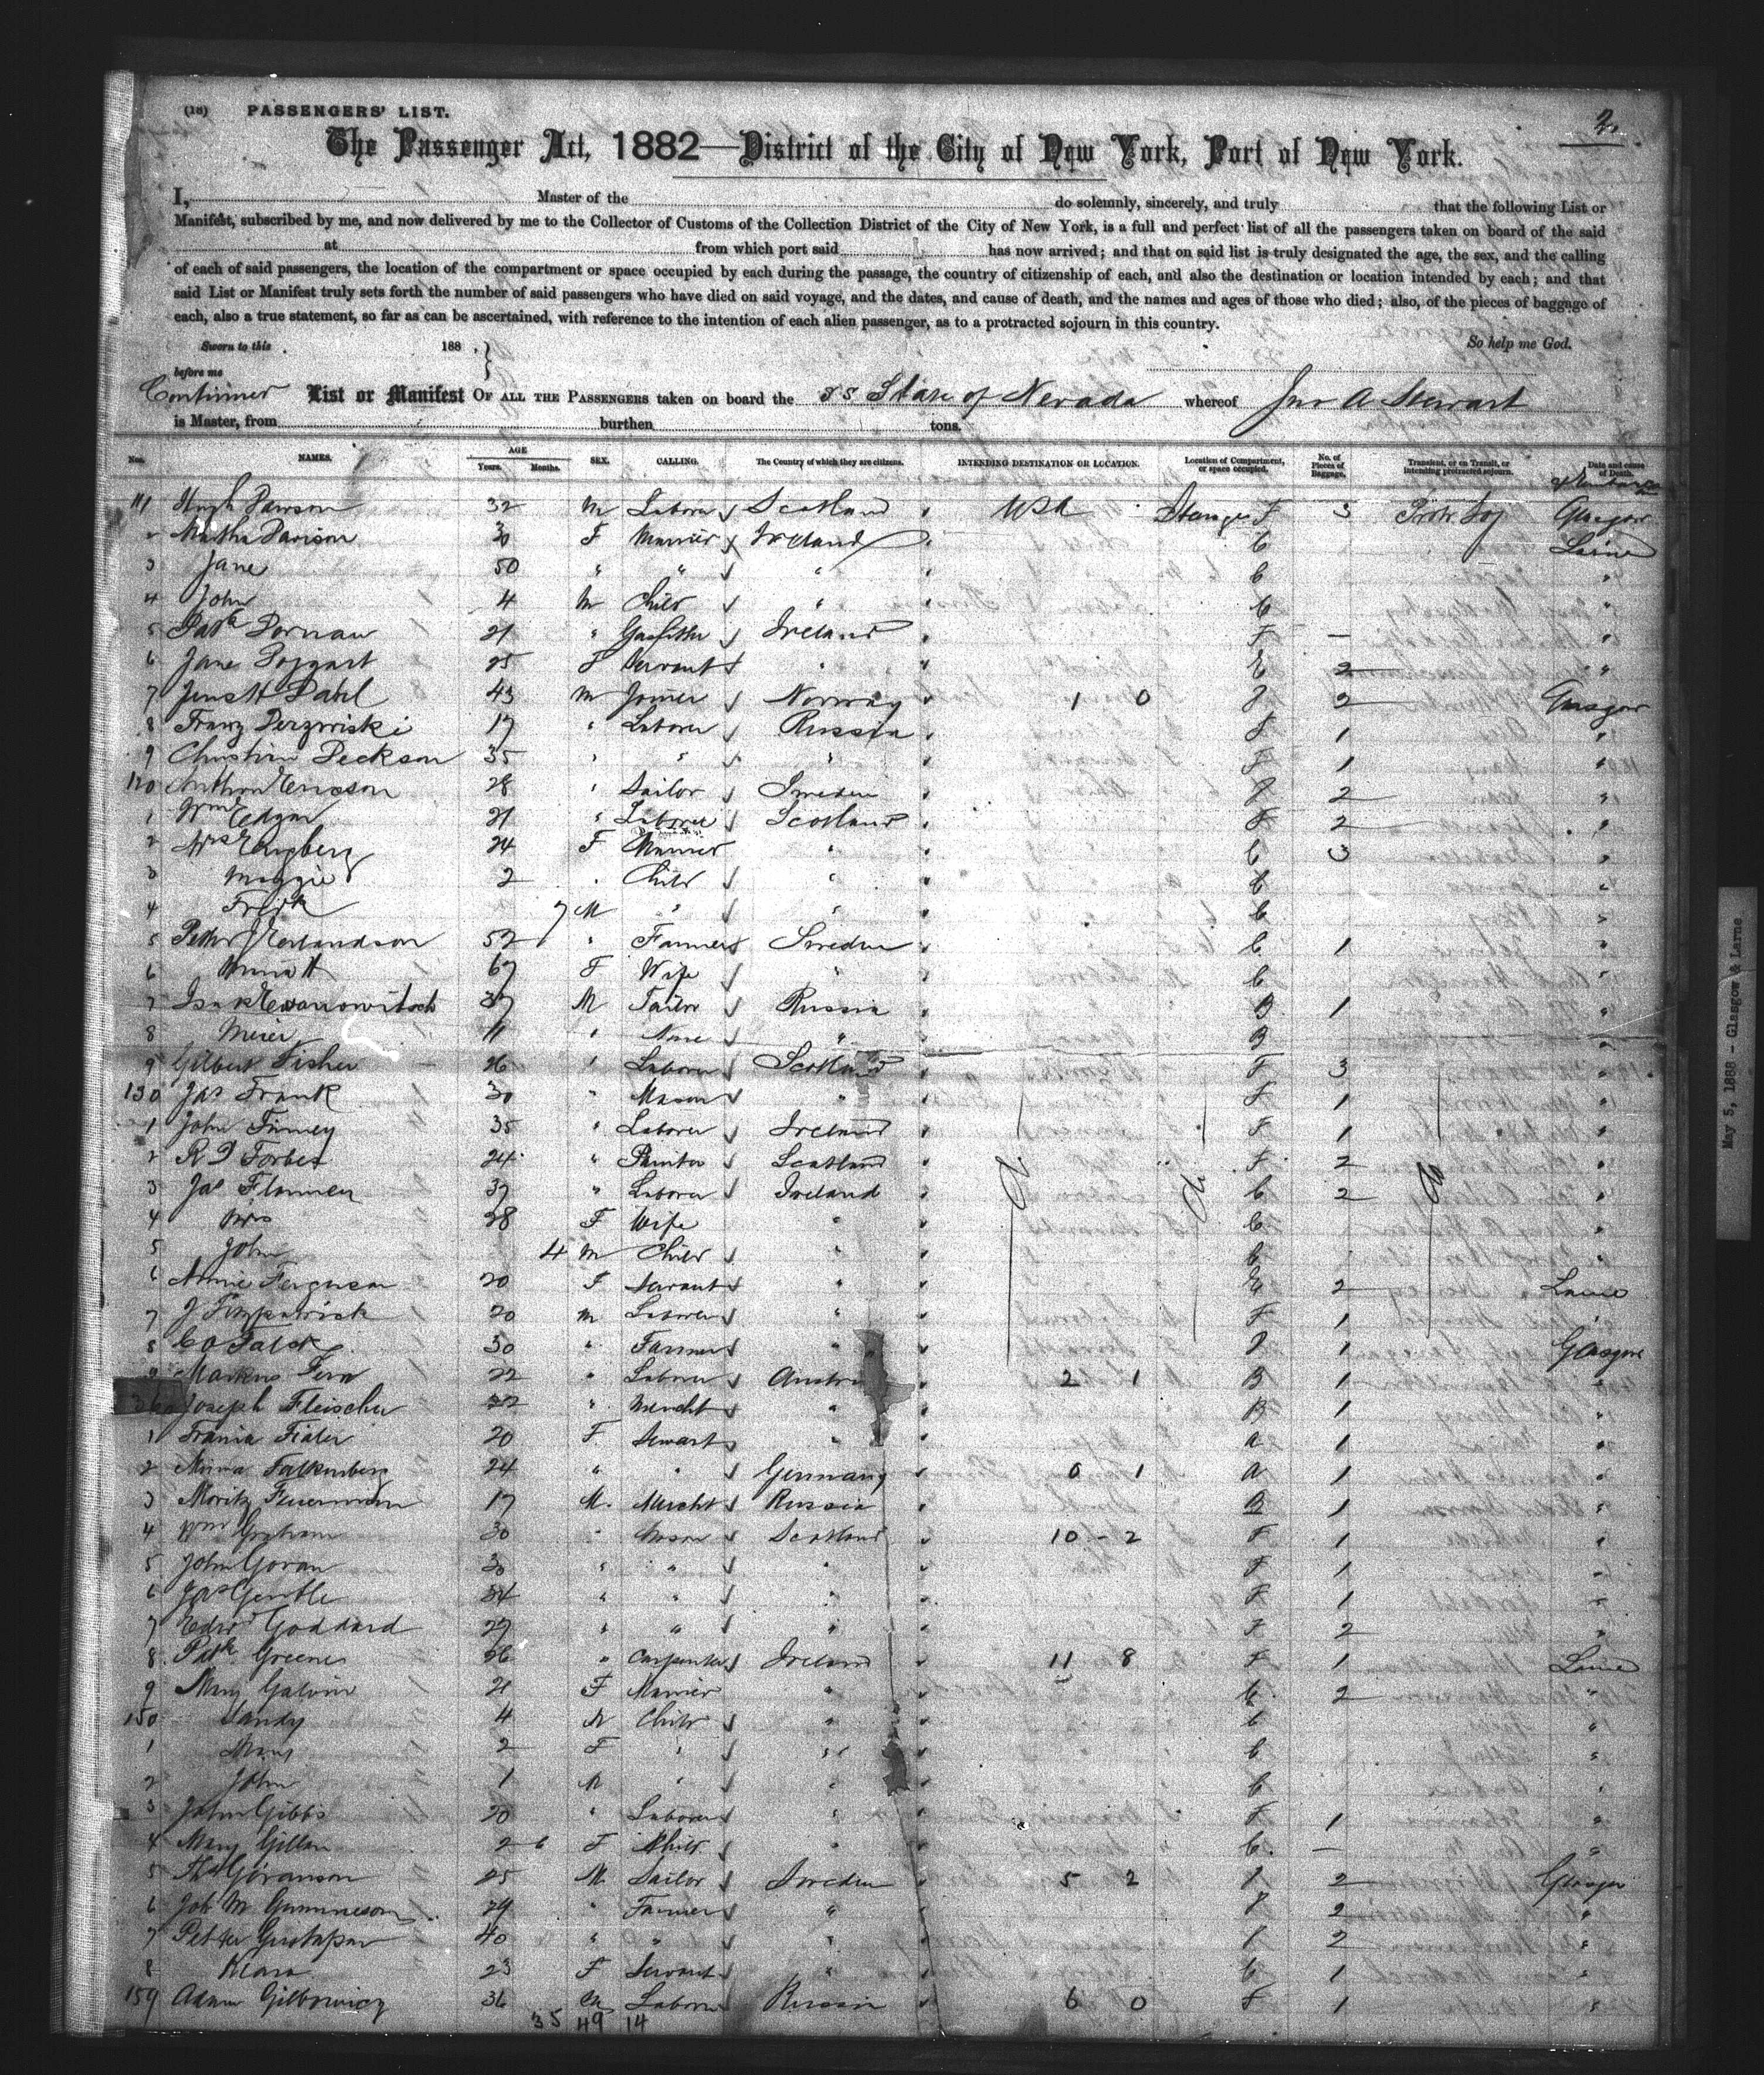 (18) PASSENGERS' LIST.
2.
The Passenger Act, 1882—District of the City of New York, Port of New York.
I, Master of the do solemnly, sincerely, and truly that the following List or
Manifest, subscribed by me, and now delivered by me to the Collector of Customs of the Collection District of the City of New York, is a full and perfect list of all the passengers taken on board of the said
at from which port said has now arrived; and that on said list is truly designated the age, the sex, and the calling
of each of said passengers, the location of the compartment or space occupied by each during the passage, the country of citizenship of each, and also the destination or location intended by each; and that
said List or Manifest truly sets forth the number of said passengers who have died on said voyage, and the dates, and cause of death, and the names and ages of those who died; also, of the pieces of baggage of
each, also a true statement, so far as can be ascertained, with reference to the intention of each alien passenger, as to a protracted sojourn in this country.
Sworn to this 188 . So help me God.
before me
Continued List or Manifest OF ALL THE PASSENGERS taken on board the SS State of Nevada whereof Jno A Stewart
is Master, from burthen tons.
Nos. NAMES. AGE Years. Months. SEX. CALLING. The Country of which they are citizens. INTENDING DESTINATION OR LOCATION. Location of Compartment, or space occupied. No. of Pieces of Baggage. Transient, or on Transit, or intending protracted sojourn. Date and cause of Death.
111 Hugh Dawson 32 M Laborer Scotland " USA Steerage F 3 Protr Soj Glasgow
2 Martha Davison 30 F Married Ireland " C Larne
3 Jane 50 " " " " C "
4 John 4 M Child " " C "
5 Patk Dornan 21 " Gasfitter Ireland " F — "
6 Jane Doggart 25 F Servant " " E 2 "
7 Jens H Dahl 43 M Joiner Norway " 1 0 F 2 Glasgow
8 Franz 17 " Laborer Russia " F 1 "
9 Christian Deckson 35 " " " " F 1 "
120 Anthon Ericson 28 " Sailor Sweden " F 2 "
1 Wm Edgar 21 " Laborer Scotland " F 2 "
2 Mrs Engberg 24 F Married " " C 3 "
3 Maggie 2 " Child " " C "
4 Fredk 7 M " " " C "
5 Peter Erlandson 52 " Farmer Sweden " C 1 "
6 Anna H 67 F Wife " " C "
7 Isak 37 M Tailor Russia " B 1 "
8 Meier 11 " None " " B "
9 Gilbert Fisher 26 " Laborer Scotland " F 3 "
130 Jas Frank 30 " Mason " " F 1 "
1 John Finney 35 " Laborer Ireland " F 1 "
2 R D Forbes 24 " Painter Scotland " F 2 "
3 Jas Flannery 37 " Laborer Ireland " C 2 "
4 Mrs 28 F Wife " " C "
5 John 4 M Child " " C "
6 Annie Ferguson 20 F Servant " " E 2 Larne
7 J Fitzpatrick 20 M Laborer " " F 1 "
8 C O Falck 30 " Farmer " " F 1 Glasgow
9 Markus Fern 22 " Laborer Austria " 2 1 B 1 "
Joseph Fleischer 22 " Mercht " " B 1 "
1 Frania Fialer 20 F Servant " " A 1 "
2 Minna Falkenberg 24 " " Germany " 0 1 A 1 "
3 Moritz Feuermann 17 M. Mercht Russia " B 1 "
4 Wm Graham 30 " Mason Scotland " 10 - 2 F 1 "
5 John Govan 30 " " " " F 1 "
6 Jas Gentle 34 " " " " F 1 "
7 Edwd Goddard 27 " " " " F 2 "
8 Patk Greene 26 " Carpenter Ireland " 11 8 F 1 Larne
9 Mary Galvin 21 F Married " " C 2 "
150 Sandy 4 M Child " " C "
1 Mary 2 F " " " C "
2 John 1 M " " " C "
3 John Gibbs 20 " Laborer " " F 1 "
4 Mary Gillan 2 6 F Child " " C. — "
5 Thos Goranson 25 M Sailor Sweden " 5 2 F 2 Glasgow
6 Joh M Gunneson 29 " Farmer " " F 2 "
7 Petter Gustafson 40 " " " " F 2 "
8 Klara 23 F Servant " " C 1 "
159 Adam Gilbowicz 36 M Laborer Russia " 6 0 F 1 "
35 49 14
May 5, 1888 - Glasgow & Larne